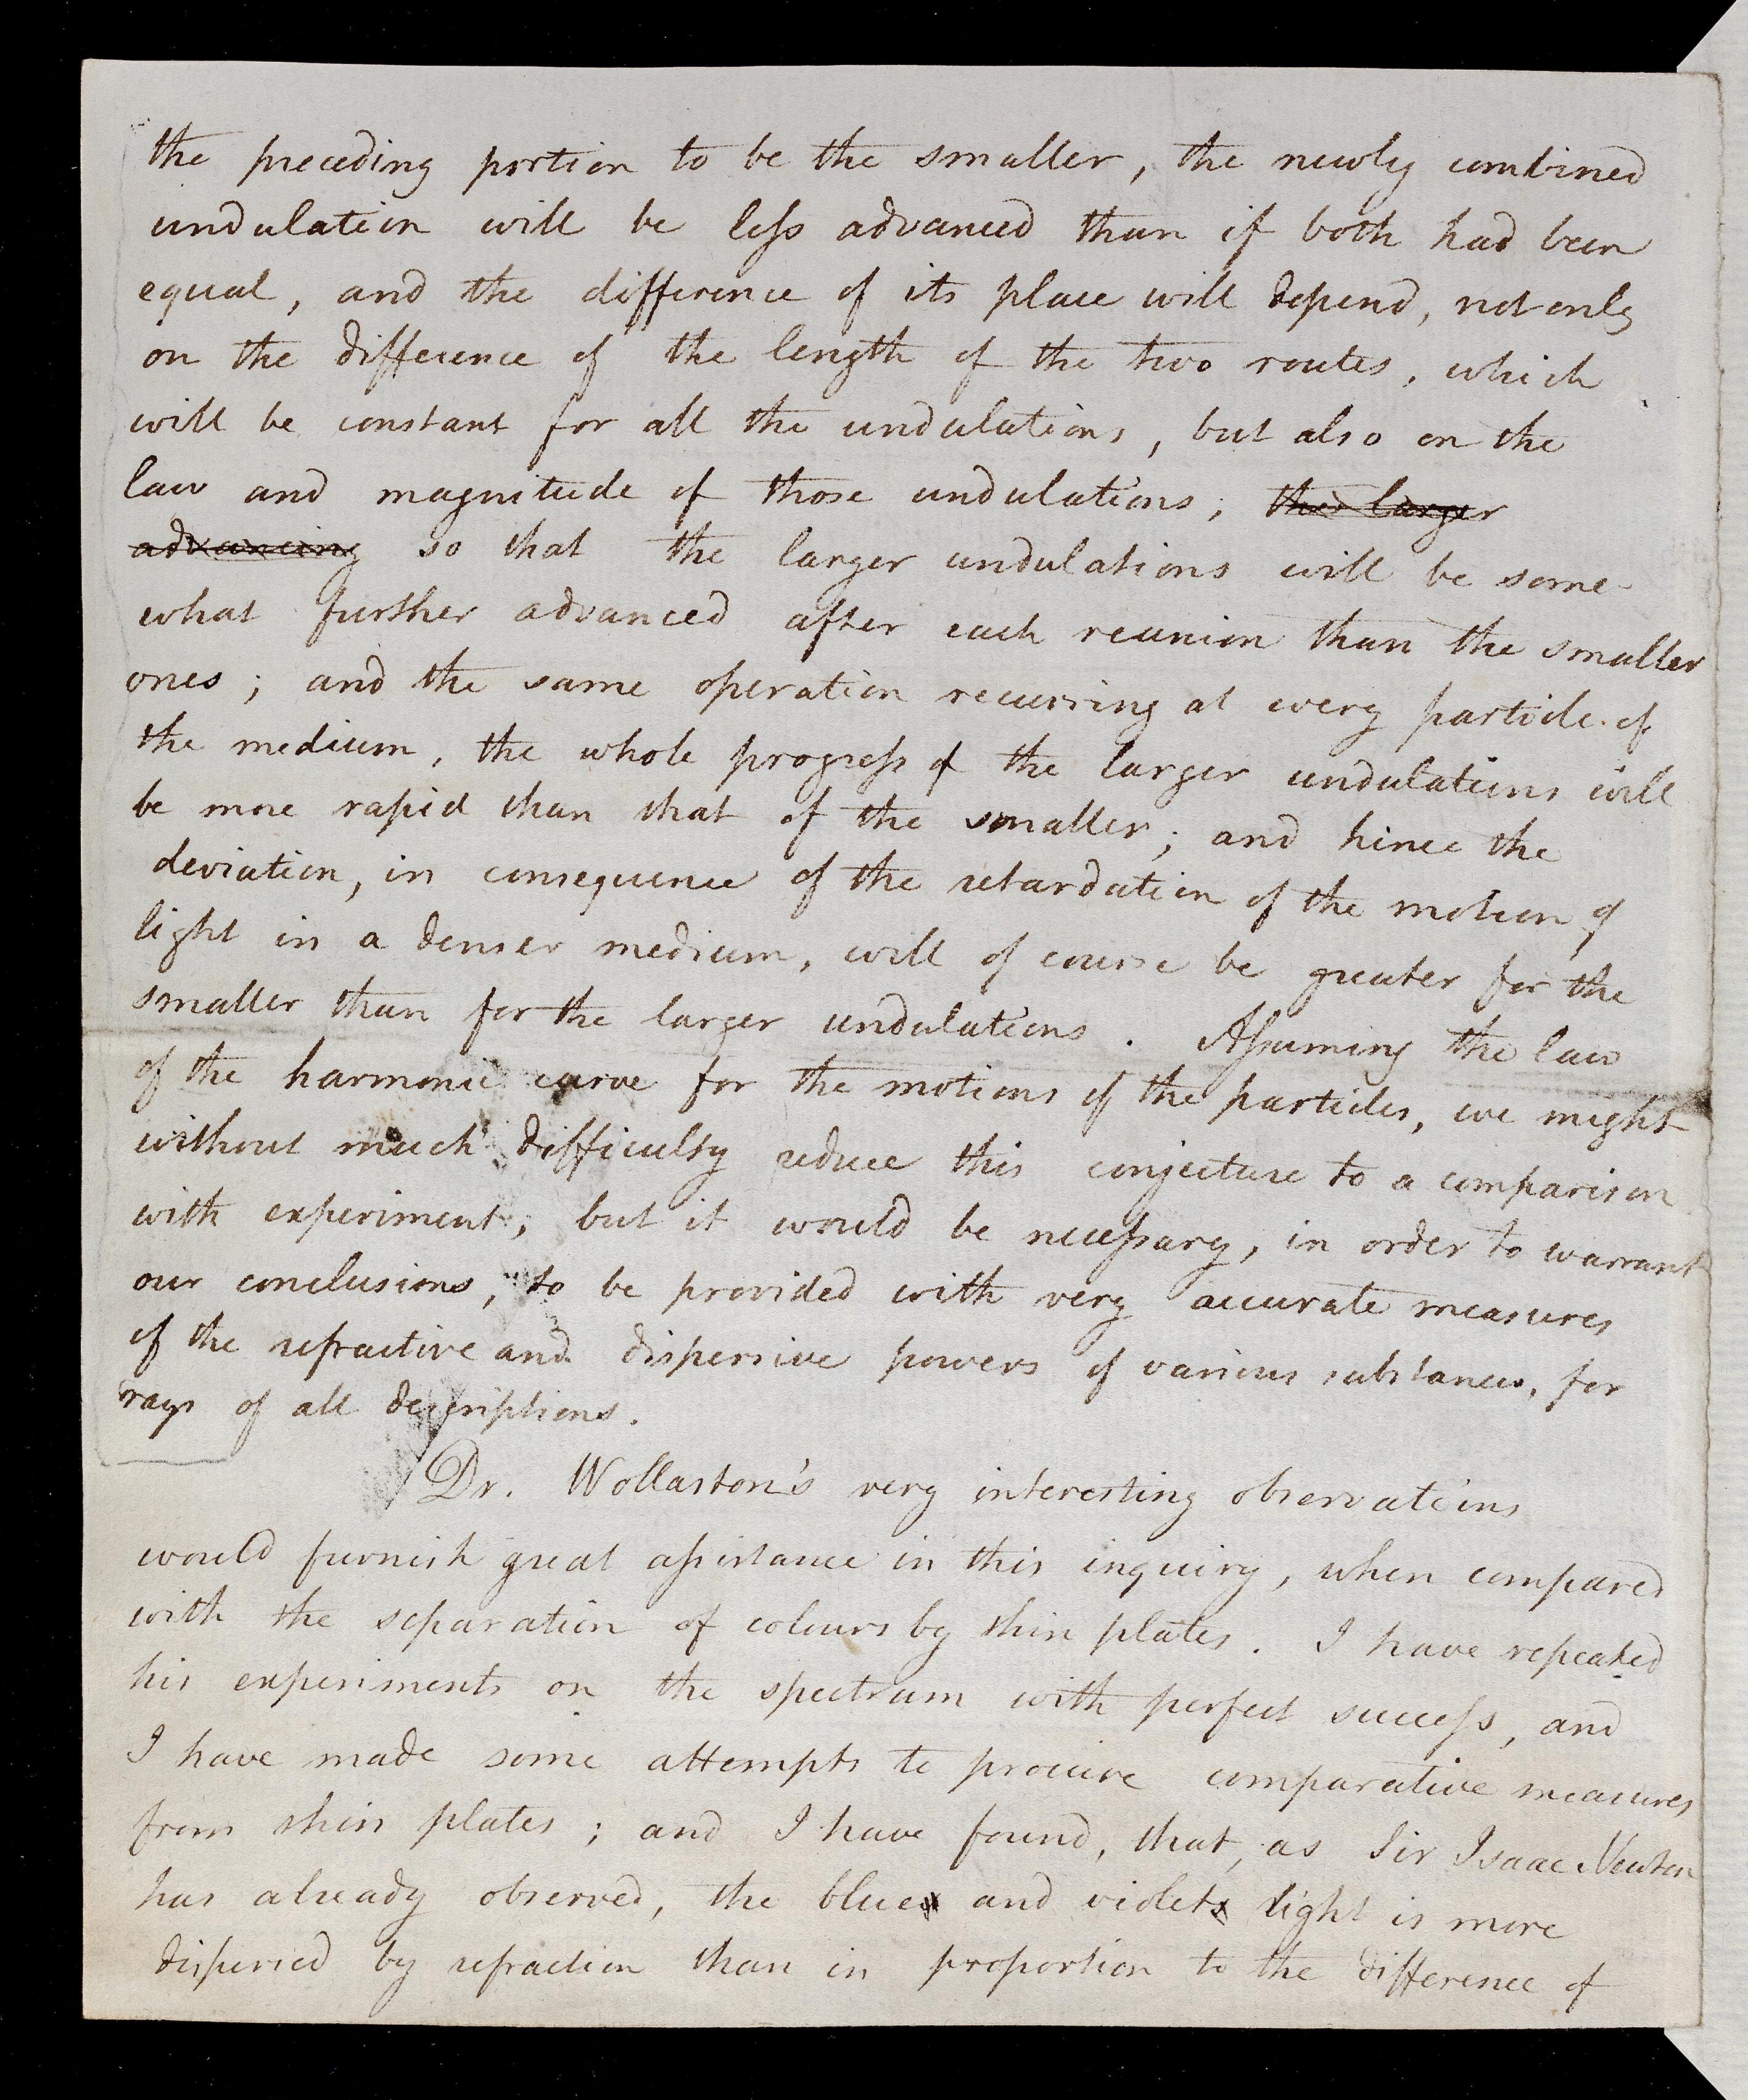 the preceding portion to be the smaller, the newly combined
undulation will be less advanced than if both had been
equal, and the difference of its place will depend, not only
on the difference of the length of the two routes, which
will be constant for all the undulations, but also on the
law and magnitude of those undulations; the larger
advancing so that the larger undulations will be some-
what further advanced after each reunion than the smaller
ones; and the same operation recurring at every particle of
the medium, the whole progress of the larger undulations will
be more rapid than that of the smaller; and hence the
deviation, in consequence of the retardation of the motion of
light in a denser medium, will of course be greater for the
smaller than for the larger undulations. Assuming the law
of the harmonic curve for the motions of the particles, we might
without much difficulty reduce this conjecture to a comparison
with experiment; but it would be necessary, in order to warrant
our conclusions, to be provided with very accurate measures
of the refractive and dispersive powers of various substances, for
rays of all descriptions.
Dr. Wollaston's very interesting observations
would furnish great assistance in this inquiry, when compared
with the separation of colours by thin plates. I have repeated
his experiments on the spectrum with perfect success, and
I have made some attempts to procure comparative measures
from thin plates; and I have found, that, as Sir Isaac Newton
has already observed, the blue and violet light is more
dispersed by refraction than in proportion to the difference of